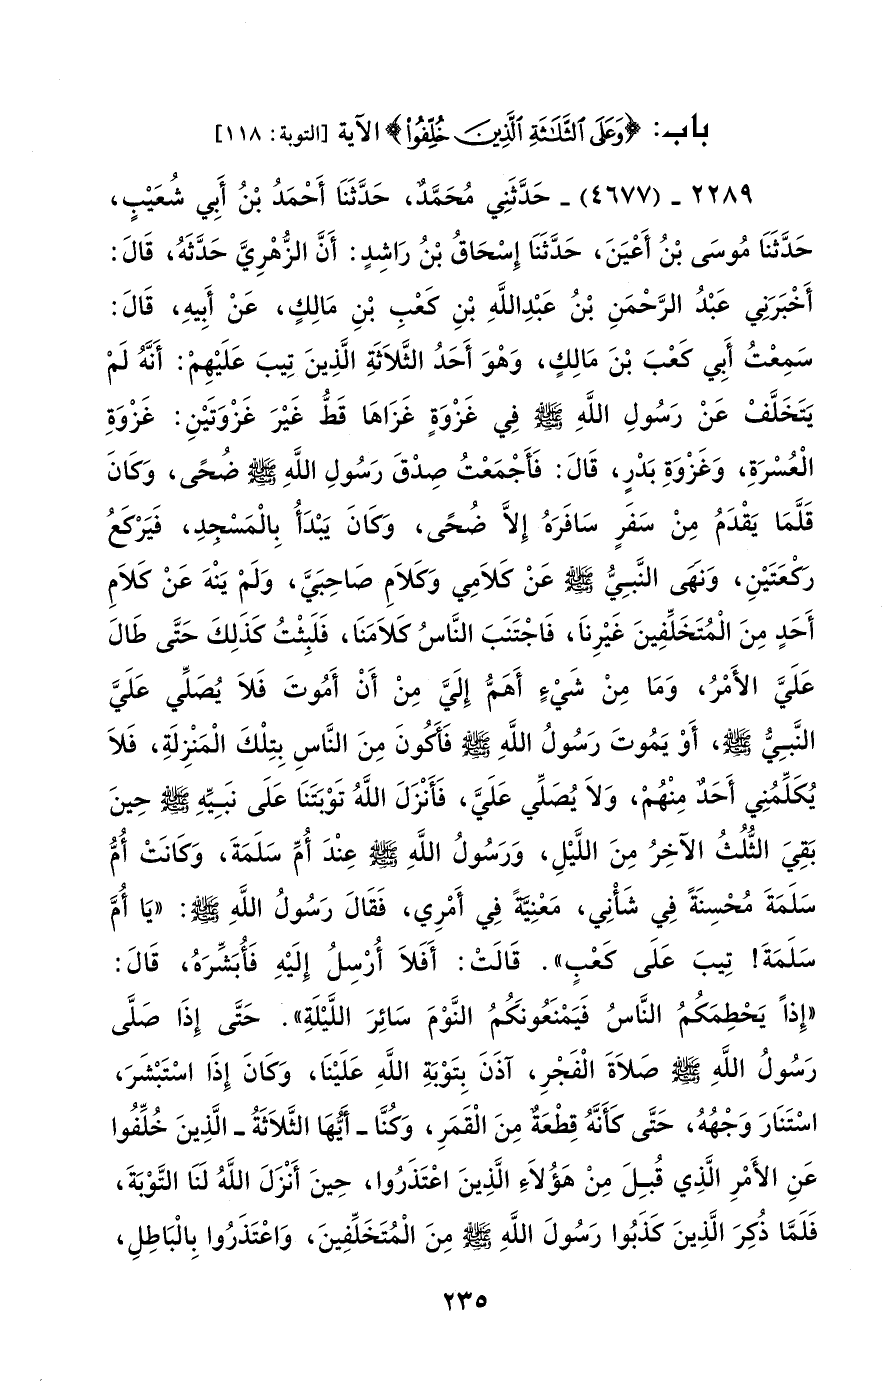 باب: ﴿وَعَلَى الثَّلَاثَةِ الَّذِينَ خُلِّفُوا﴾ الآية [التوبة: ١١٨]
٢٢٨٩ ـ (٤٦٧٧) ـ حَدَّثَنِي مُحَمَّدٌ، حَدَّثَنَا أَحْمَدُ بْنُ أَبِي شُعَيْبٍ،
حَدَّثَنَا مُوسَى بْنُ أَعْيَنَ، حَدَّثَنَا إِسْحَاقُ بْنُ رَاشِدٍ: أَنَّ الزُّهْرِيَّ حَدَّثَهُ، قَالَ:
أَخْبَرَنِي عَبْدُ الرَّحْمَنِ بْنُ عَبْدِاللَّهِ بْنِ كَعْبِ بْنِ مَالِكٍ، عَنْ أَبِيهِ، قَالَ:
سَمِعْتُ أَبِي كَعْبَ بْنَ مَالِكٍ، وَهْوَ أَحَدُ الثَّلاَثَةِ الَّذِينَ تِيبَ عَلَيْهِمْ: أَنَّهُ لَمْ
يَتَخَلَّفْ عَنْ رَسُولِ اللَّهِ ﷺ فِي غَزْوَةٍ غَزَاهَا قَطُّ غَيْرَ غَزْوَتَيْنِ: غَزْوَةِ
الْعُسْرَةِ، وَغَزْوَةِ بَدْرٍ، قَالَ: فَأَجْمَعْتُ صِدْقَ رَسُولِ اللَّهِ ﷺ ضُحًى، وَكَانَ
قَلَّمَا يَقْدَمُ مِنْ سَفَرٍ سَافَرَهُ إِلاَّ ضُحًى، وَكَانَ يَبْدَأُ بِالْمَسْجِدِ، فَيَرْكَعُ
رَكْعَتَيْنِ، وَنَهَى النَّبِيُّ ﷺ عَنْ كَلاَمِي وَكَلاَمِ صَاحِبَيَّ، وَلَمْ يَنْهَ عَنْ كَلاَمِ
أَحَدٍ مِنَ الْمُتَخَلِّفِينَ غَيْرِنَا، فَاجْتَنَبَ النَّاسُ كَلاَمَنَا، فَلَبِثْتُ كَذَلِكَ حَتَّى طَالَ
عَلَيَّ الأَمْرُ، وَمَا مِنْ شَيْءٍ أَهَمُّ إِلَيَّ مِنْ أَنْ أَمُوتَ فَلاَ يُصَلِّي عَلَيَّ
النَّبِيُّ ﷺ، أَوْ يَمُوتَ رَسُولُ اللَّهِ ﷺ فَأَكُونَ مِنَ النَّاسِ بِتِلْكَ الْمَنْزِلَةِ، فَلاَ
يُكَلِّمُنِي أَحَدٌ مِنْهُمْ، وَلاَ يُصَلِّي عَلَيَّ، فَأَنْزَلَ اللَّهُ تَوْبَتَنَا عَلَى نَبِيِّهِ ﷺ حِينَ
بَقِيَ الثُّلُثُ الآخِرُ مِنَ اللَّيْلِ، وَرَسُولُ اللَّهِ ﷺ عِنْدَ أُمِّ سَلَمَةَ، وَكَانَتْ أُمُّ
سَلَمَةَ مُحْسِنَةً فِي شَأْنِي، مَعْنِيَّةً فِي أَمْرِي، فَقَالَ رَسُولُ اللَّهِ ﷺ: «يَا أُمَّ
سَلَمَةَ! تِيبَ عَلَى كَعْبٍ». قَالَتْ: أَفَلاَ أُرْسِلُ إِلَيْهِ فَأُبَشِّرَهُ، قَالَ:
«إِذاً يَحْطِمَكُمُ النَّاسُ فَيَمْنَعُونَكُمُ النَّوْمَ سَائِرَ اللَّيْلَةِ». حَتَّى إِذَا صَلَّى
رَسُولُ اللَّهِ ﷺ صَلاَةَ الْفَجْرِ، آذَنَ بِتَوْبَةِ اللَّهِ عَلَيْنَا، وَكَانَ إِذَا اسْتَبْشَرَ،
اسْتَنَارَ وَجْهُهُ، حَتَّى كَأَنَّهُ قِطْعَةٌ مِنَ الْقَمَرِ، وَكُنَّا ـ أَيُّهَا الثَّلاَثَةُ ـ الَّذِينَ خُلِّفُوا
عَنِ الأَمْرِ الَّذِي قُبِلَ مِنْ هَؤُلاَءِ الَّذِينَ اعْتَذَرُوا، حِينَ أَنْزَلَ اللَّهُ لَنَا التَّوْبَةَ،
فَلَمَّا ذُكِرَ الَّذِينَ كَذَبُوا رَسُولَ اللَّهِ ﷺ مِنَ الْمُتَخَلِّفِينَ، وَاعْتَذَرُوا بِالْبَاطِلِ،
٢٣٥